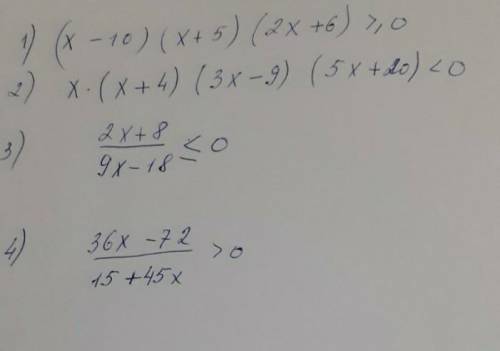 1) (x - 10) (x + 5) (2x + 6) ⩾ 0
2) x · (x + 4) (3x - 9) (5x + 20) < 0
3) (2x + 8)/(9x - 18) ≤ 0
4) (36x - 72)/(15 + 45x) > 0